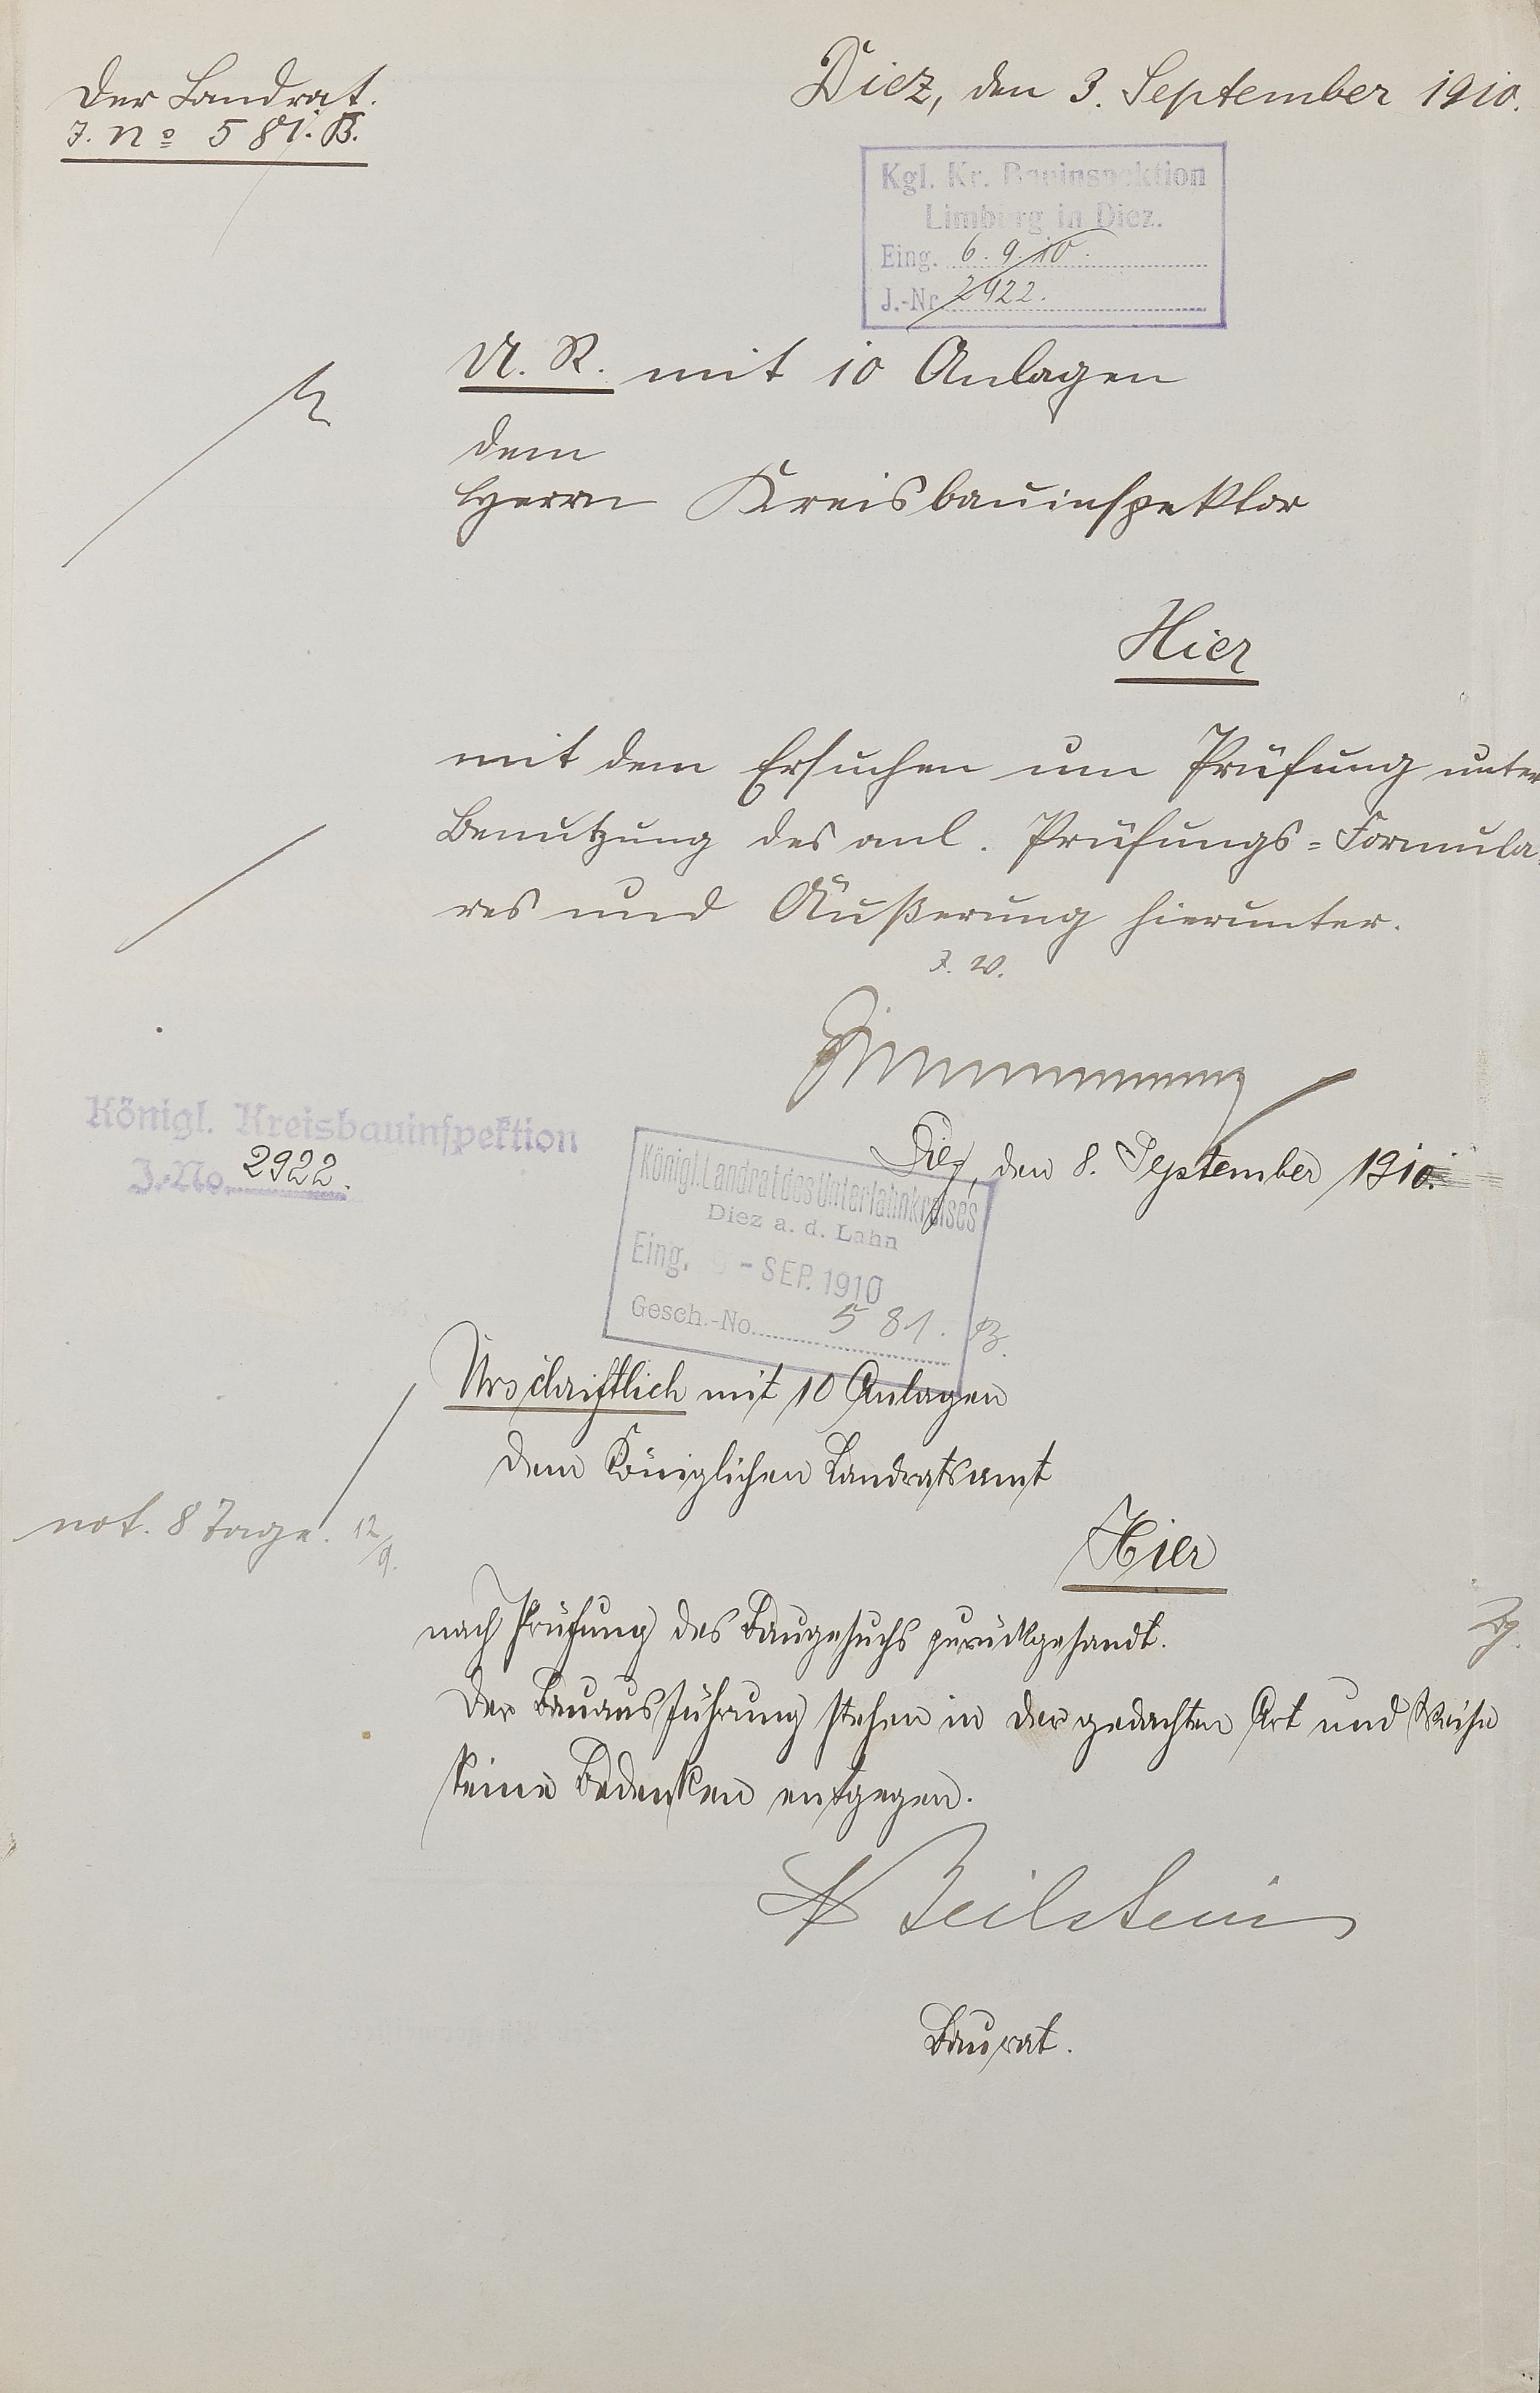 Der Landrat.
J. No 581. B.
Diez, den 3. September 1910.
Kgl. Kr. Bauinspektion
Limburg in Diez.
Eing. 6. 9. 10.
J.-Nr. 2922.
U. R. mit 10 Anlagen
dem
Herrn Kreisbauinspektor
Hier
mit dem Ersuchen um Prüfung unter
Benutzung des anl. Prüfungs=Formula
res und Äußerung hierunter.
J. V.
Königl. Kreisbauinspektion
J.-No. 2922.
Diez, den 8. September 1910.
Königl. Landrat des Unterlahnkreises
Diez a. d. Lahn
Eing. - SEP. 1910
Gesch.-No. 581. B.
Urschriftlich mit 10 Anlagen
dem Königlichen Landratsamt
not. 8 Tage. 12/9.
Hier
nach Prüfung des Baugesuchs zurückgesandt.
Der Bauausführung stehen in der gedachten Art und Weise
keine Bedenken entgegen.
Beilstein
Baurat.